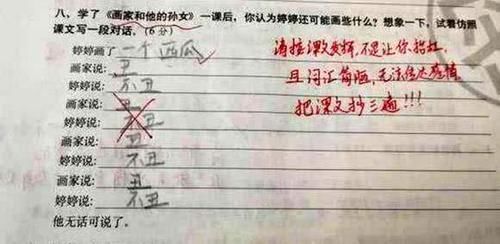 八、学了《画家和他的孙女》一课后，你认为婷婷还可能画些什么？想象一下，试着仿照
课文写一段对话。(6分)
婷婷画了一个西瓜
画家说：丑
婷婷说：不丑
画家说：丑
婷婷说：不丑
画家说：丑
婷婷说：不丑
画家说：丑
婷婷说：不丑
他无话可说了。
请按课文安排，不是让你抬杠
且词汇简陋，无法传达感情
把课文抄三遍!!!